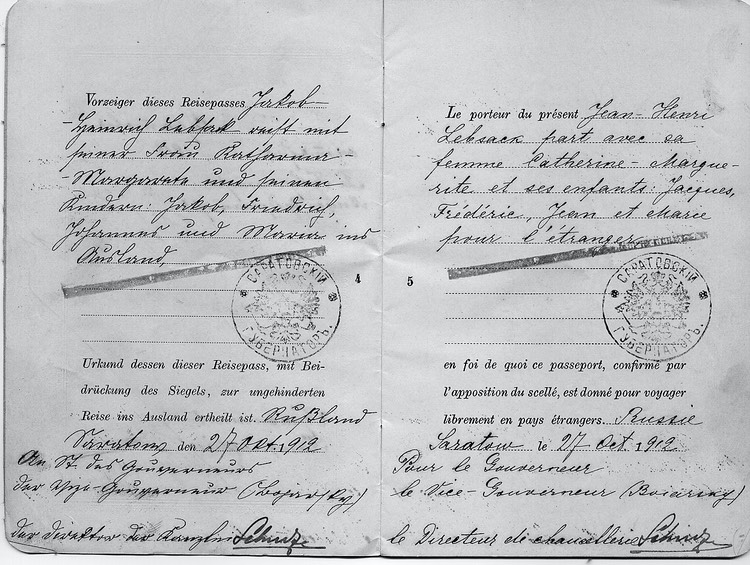 Vorzeiger dieses Reisepasses Jakob-
Heinrich Lebsack reist mit
seiner Frau Katharina-
-Margareta und seinen
Kindern: Jakob, Friedrich,
Johannes und Maria ins
Ausland,
САРАТОВСКІЙ
ГУБЕРНАТОРЪ.
4
Urkund dessen dieser Reisepass, mit Bei-
drückung des Siegels, zur ungehinderten
Reise ins Ausland ertheilt ist. Rußland
Saratow den 27 Okt. 1912
An St. des Gouverneurs
der Vize-Gouverneur
der Direktor der Kanzlei Schmz
5
Le porteur du présent Jean-Henri
Lebsack part avec sa
femme Catherine-Margue-
rite et ses enfants: Jacques,
Frédéric, Jean et Marie
pour l'étranger
САРАТОВСКІЙ
ГУБЕРНАТОРЪ.
en foi de quoi ce passeport, confirmé par
l'apposition du scellé, est donné pour voyager
librement en pays étrangers. Russie
Saratow le 27 Oct 1912
Pour le Gouverneur
le Vice-Gouverneur
le Directeur de chancellerie